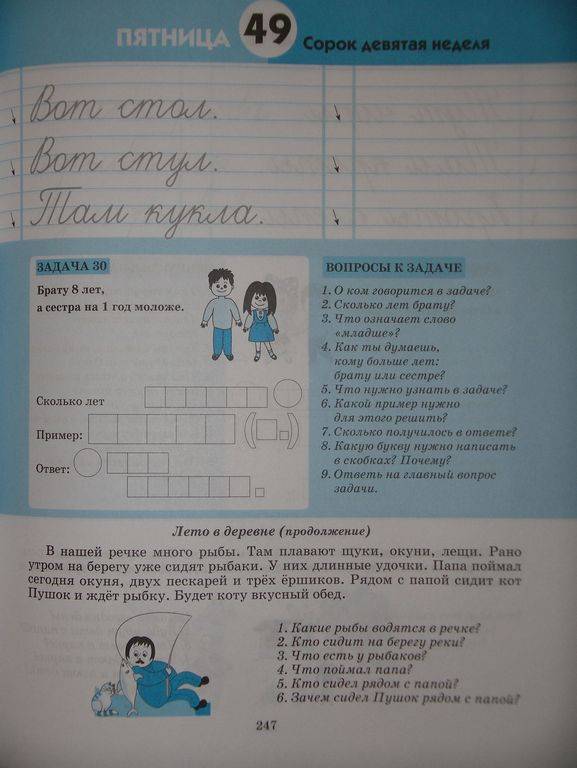 ПЯТНИЦА 49 Сорок девятая неделя
Вот стол.
Вот стул.
Там кукла.
ЗАДАЧА 30
Брату 8 лет,
а сестра на 1 год моложе.
Сколько лет
Пример:
( . )
Ответ:
.
ВОПРОСЫ К ЗАДАЧЕ
1. О ком говорится в задаче?
2. Сколько лет брату?
3. Что означает слово
«младше»?
4. Как ты думаешь,
кому больше лет:
брату или сестре?
5. Что нужно узнать в задаче?
6. Какой пример нужно
для этого решить?
7. Сколько получилось в ответе?
8. Какую букву нужно написать
в скобках? Почему?
9. Ответь на главный вопрос
задачи.
Лето в деревне (продолжение)
В нашей речке много рыбы. Там плавают щуки, окуни, лещи. Рано
утром на берегу уже сидят рыбаки. У них длинные удочки. Папа поймал
сегодня окуня, двух пескарей и трёх ёршиков. Рядом с папой сидит кот
Пушок и ждёт рыбку. Будет коту вкусный обед.
1. Какие рыбы водятся в речке?
2. Кто сидит на берегу реки?
3. Что есть у рыбаков?
4. Что поймал папа?
5. Кто сидел рядом с папой?
6. Зачем сидел Пушок рядом с папой?
247